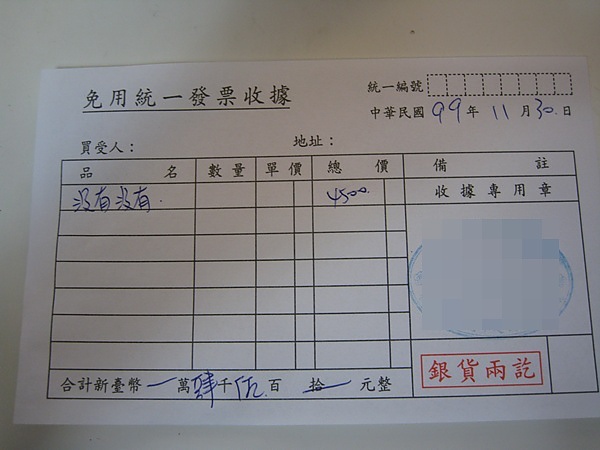 免用統一發票收據
統一編號
中華民國 99 年 11 月 30 日
買受人： 地址：
品名 數量 單價 總價 備註
收據專用章
沒有沒有 4500
銀貨兩訖
合計新臺幣 一 萬 肆 千 伍 百 拾 元整